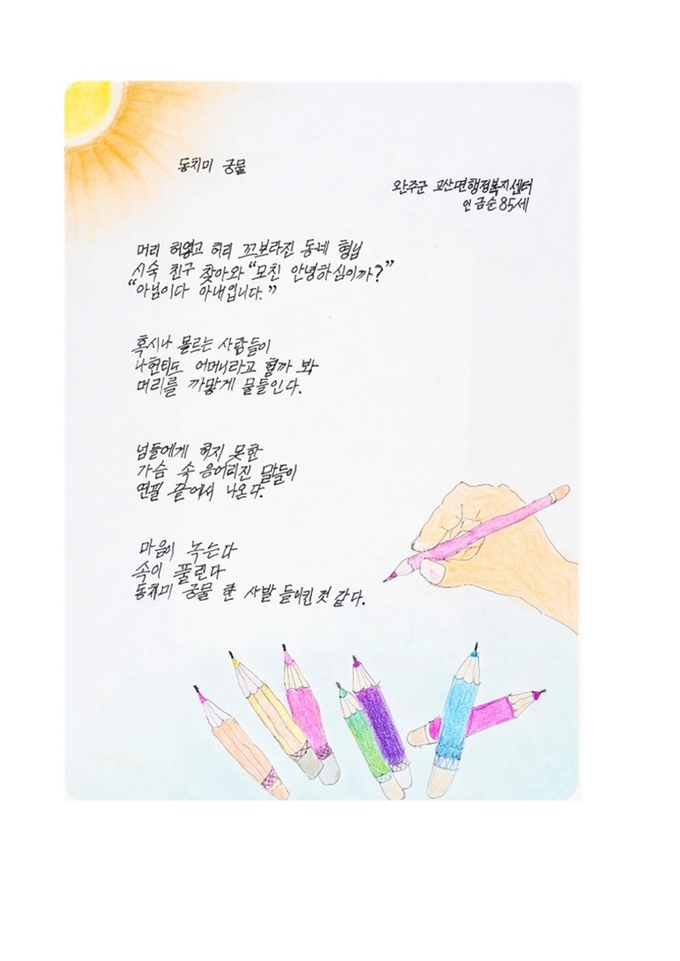 동치미 궁물
완주군 고산면행정복지센터
인금순 85세
머리 허옇고 허리 꼬브라진 동네 형님
시숙 친구 찾아와 “모친 안녕하심이까?”
“아님이다 아내입니다.”
혹시나 몰르는 사람들이
나헌티도 어머니라고 헐까 봐
머리를 까맣게 물들인다.
넘들에게 허지 못한
가슴 속 응어리진 말들이
연필 끝에서 나온다.
마음이 녹는다
속이 풀린다
동치미 궁물 한 사발 들이킨 것 같다.